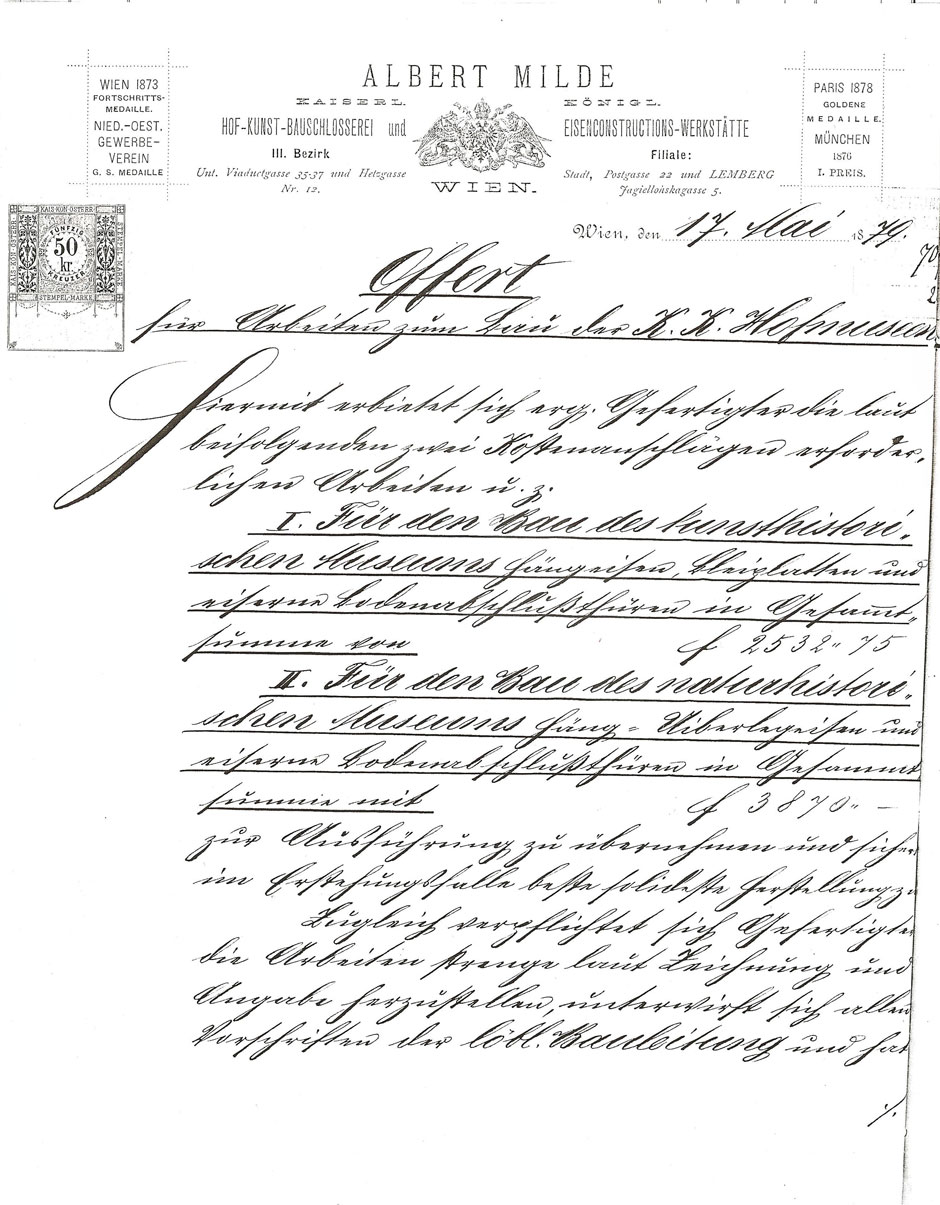 ALBERT MILDE
WIEN 1873
FORTSCHRITTS-
MEDAILLE.
NIED.-OEST.
GEWERBE-
VEREIN
G. S. MEDAILLE
KAISERL. KÖNIGL.
HOF-KUNST-BAUSCHLOSSEREI und EISENCONSTRUCTIONS-WERKSTÄTTE
III. Bezirk
Unt. Viaductgasse 35-37 und Hetzgasse
Nr. 12.
WIEN.
Filiale:
Stadt, Postgasse 22 und LEMBERG
Jagiellońskagasse 5.
PARIS 1878
GOLDENE
MEDAILLE.
MÜNCHEN
1876
I. PREIS.
KAIS·KÖN·ÖSTERR·
STEMPEL-MARKE
FÜNFZIG
50
kr.
KREUZER
STEMPEL-MARKE
Wien, den 17. Mai 1879.
70
2
Offert
für Arbeiten zum Bau der K. K. Hofmuseen.
Hiermit erbietet sich erg. Gefertigter die laut
beifolgenden zwei Kostenanschlägen erforder-
lichen Arbeiten u. z.
I. Für den Bau des kunsthistori-
schen Museums Hängeisen, Bleiplatten und
eiserne Bodenabschlußthüren in Gesammt-
summe von f 2532" 75
II. Für den Bau des naturhistori-
schen Museums Häng- Ueberlegeisen und
eiserne Bodenabschlußthüren in Gesammt
summe mit f 3870" –
zur Ausführung zu übernehmen und sicher
im Erstehungsfalle beste solideste Herstellung z
Zugleich verpflichtet sich Gefertigte
die Arbeiten strenge laut Zeichnung und
Angabe herzustellen, unterwirft sich allen
Vorschriften der löbl. Bauleitung und hat
./.